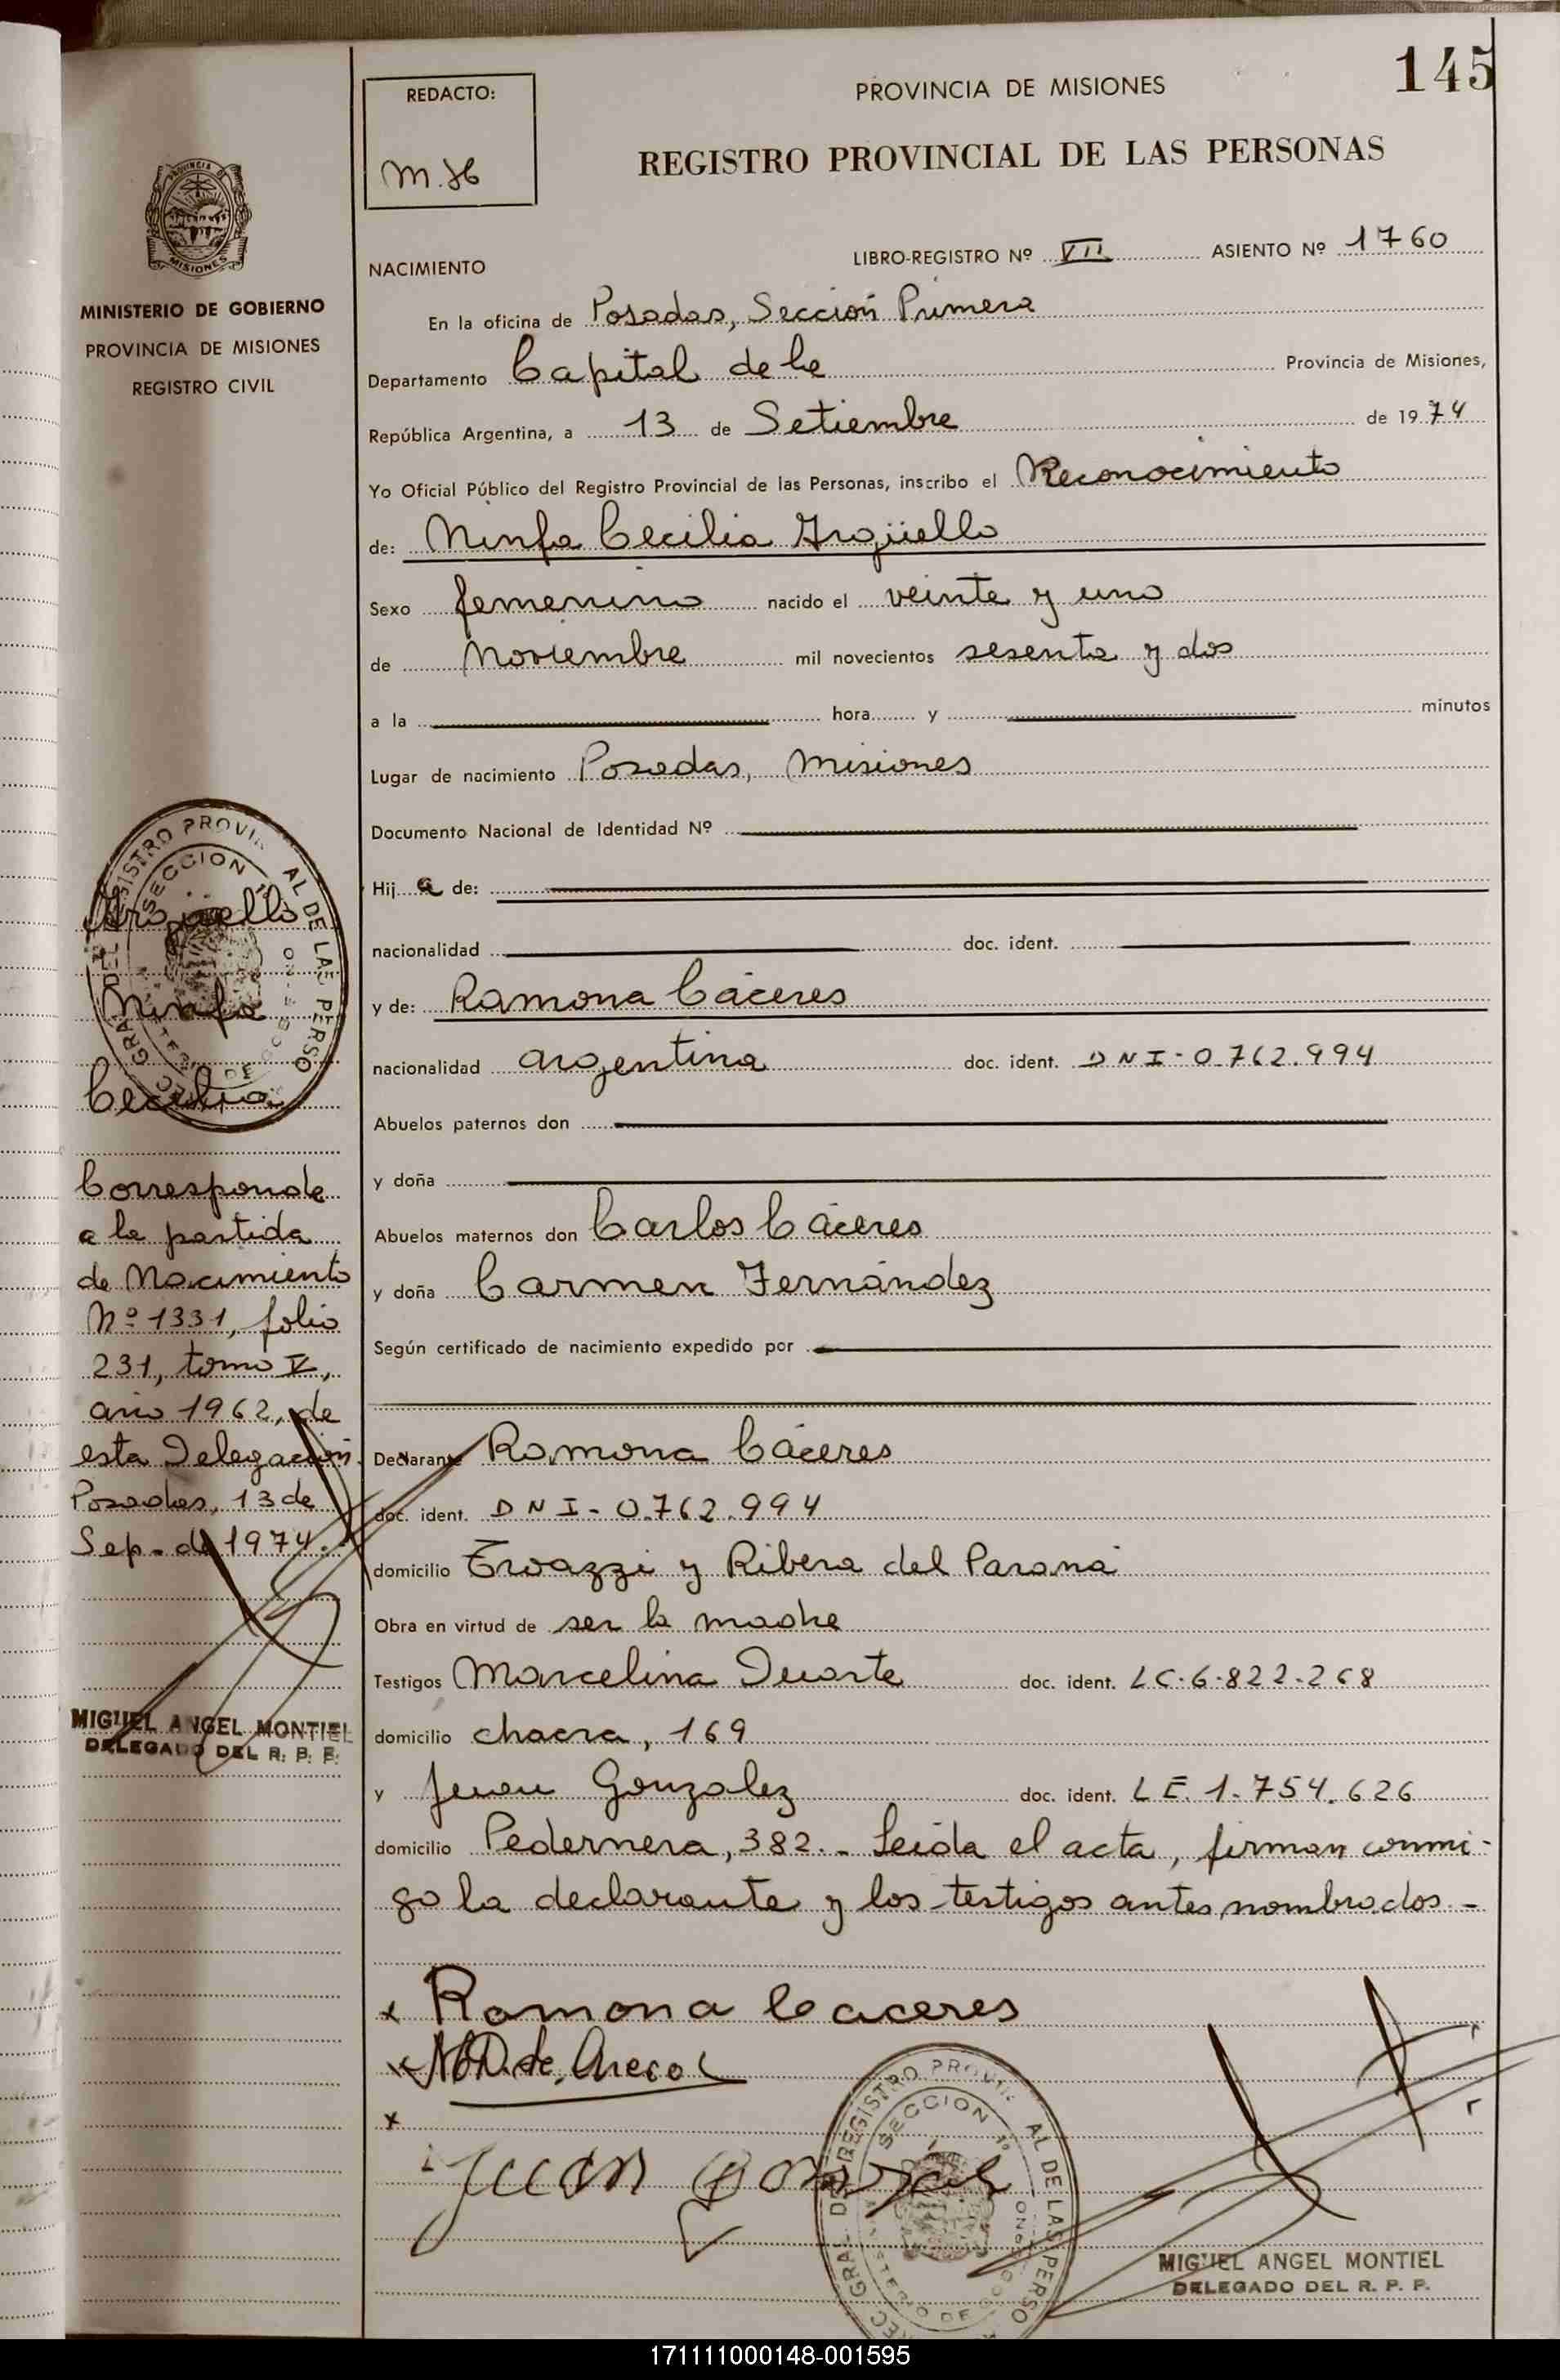 145
REDACTO:
M.H
PROVINCIA DE MISIONES
REGISTRO PROVINCIAL DE LAS PERSONAS
PROVINCIA
MISIONES
MINISTERIO DE GOBIERNO
PROVINCIA DE MISIONES
REGISTRO CIVIL
NACIMIENTO
LIBRO-REGISTRO Nº VII ASIENTO Nº 1760
En la oficina de Posadas, Sección Primera
Departamento Capital de la Provincia de Misiones,
República Argentina, a 13 de Setiembre de 1974
Yo Oficial Público del Registro Provincial de las Personas, inscribo el Reconocimiento
de: Ninfa Cecilia Argüello
Sexo femenino nacido el veinte y uno
de Noviembre mil novecientos sesenta y dos
a la hora y minutos
Lugar de nacimiento Posadas, Misiones
Documento Nacional de Identidad Nº
Hij a de:
nacionalidad doc. ident.
y de: Ramona Cáceres
nacionalidad argentina doc. ident. DNI-0.762.994
Abuelos paternos don
y doña
Abuelos maternos don Carlos Cáceres
y doña Carmen Fernández
Según certificado de nacimiento expedido por
Declarante Ramona Cáceres
doc. ident. DNI-0.762.994
domicilio y Ribera del Paraná
Obra en virtud de ser la madre
Testigos Marcelina Duarte doc. ident. LC-6-822-268
domicilio chacra, 169
y Juan Gonzalez doc. ident. LE. 1.754.626
domicilio Pedernera, 382.- Leída el acta, firman conmi-
go la declarante y los testigos antes nombrados.-
x Ramona Caceres
x
x
Juan
MIGUEL ANGEL MONTIEL
DELEGADO DEL R. P. P.
Argüello
Ninfa
Cecilia
Corresponde
a la partida
de Nacimiento
Nº 1331, folio
231, tomo V,
año 1962, de
esta Delegación.
Posadas, 13 de
Sep. de 1974.
MIGUEL ANGEL MONTIEL
DELEGADO DEL R. P. P.
171111000148-001595